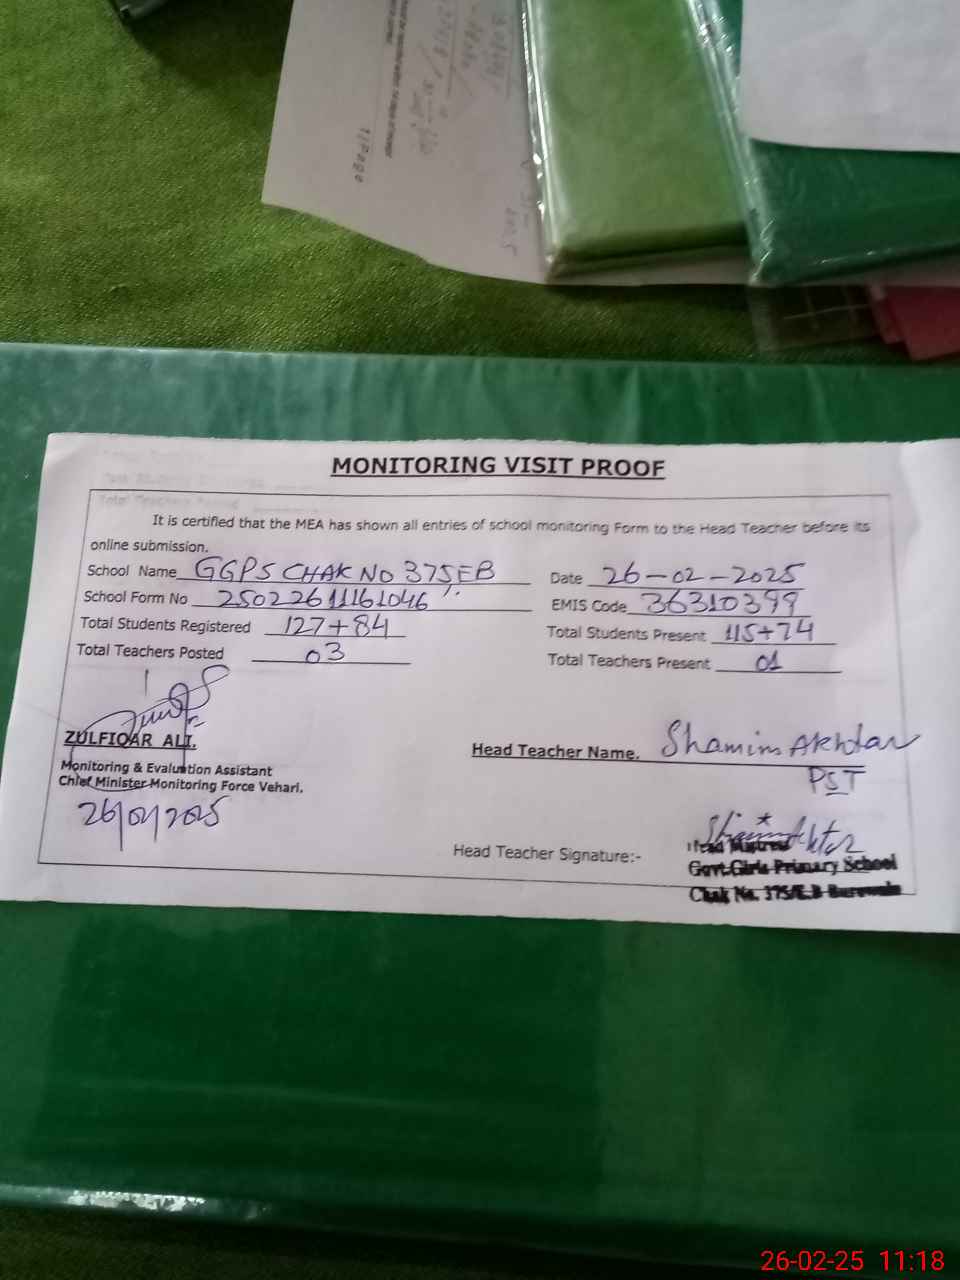 1|Page
MONITORING VISIT PROOF
It is certified that the MEA has shown all entries of school monitoring Form to the Head Teacher before its
online submission.
School Name GGPS CHAK NO 375/EB
Date 26-02-2025
School Form No 25022611161046
EMIS Code 36310399
Total Students Registered 127+84
Total Students Present 115+74
Total Teachers Posted 03
Total Teachers Present 01
ZULFIQAR ALI.
Monitoring & Evaluation Assistant
Chief Minister Monitoring Force Vehari.
26/02/2025
Head Teacher Name. Shamim Akhtar
PST
Head Teacher Signature:- Shamim Akhtar
Head Mistress
Govt.Girls Primary School
Chak No. 375/E.B Burewala
26-02-25 11:18